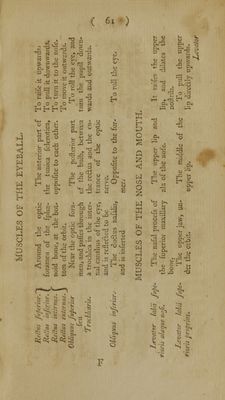 ( 61 )
MUSCLES OF THE EYEBALL.
Rectus superior.
Rectus inferior.
Rectus internus.
Rectus externus.
Around the optic
foramen of the sphe-
noid bone, at the bot-
tom of the orbit.
The anterior part of
the tunica sclerotica,
opposite to each other.
To raise it upwards.
To pull it downwards.
To turn it to the nose.
To move it outwards.
Obliquus superior
seu
Trochlearis.
Near the optic fora-
men, and passes through
a trochlea in the inter-
nal canthus of the eye,
and is reflected to be
inserted
The posterior part
of the bulb, between
the rectus and the en-
trance of the optic
nerve.
To roll the eye, and
turn the pupil down-
wards and outwards.
Obliquus inferior.
The ductus nasalis,
and is inserted
Opposite to the for-
mer.
To roll the eye.
MUSCLES OF THE NOSE AND MOUTH.
Levator labii supe-
rioris alæque nasi.
The nasal process of
the superior maxillary
bone.
The upper lip and
ala of the nose.
It raises the upper
lip, and dilates the
nostrils.
Levator labii supe-
rioris proprius.
The upper jaw, un-
der the orbit.
The middle of the
upper lip.
To pull the upper
lip directly upwards.
Levator